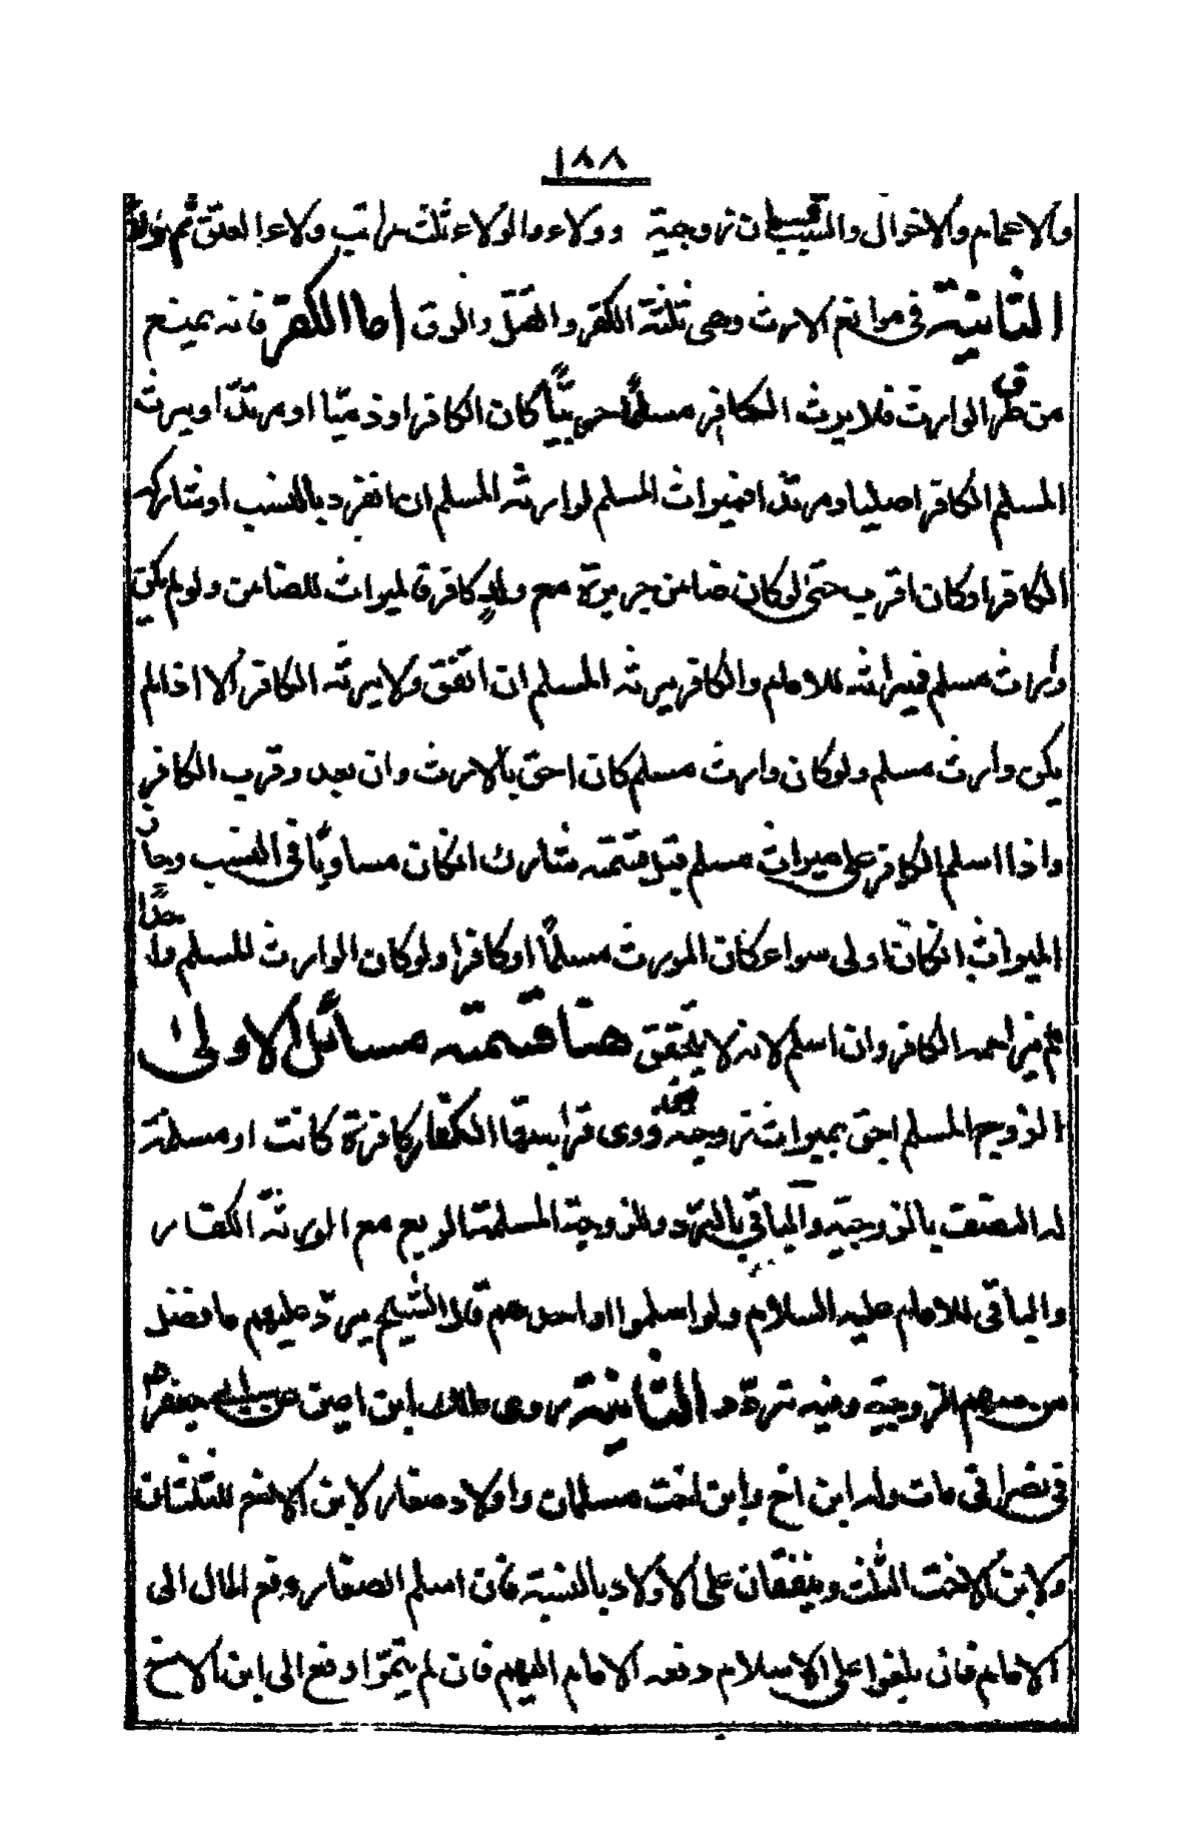 ١٨٨
والاعمام والاخوال والسبب قسمان زوجية وولاء والولاء ثلث مراتب ولاء العتق ثم
الثانية في موانع الارث وهي ثلثة الكفر والقتل والرق اما الكفر فانه يمنع
من طرق الوارث فلا يرث الكافر مسلما حربيّا كان الكافر او ذميّا او مرتدّا ويرث
المسلم الكافر اصليا ومرتدّا فميراث المسلم لوارثه المسلم ان انفرد بالنسب او شاركه
الكافر او كان اقرب حتى لو كان ضامن جريرة مع ولد كافر فالميراث للضامن ولو لم يكن
وارث مسلم فميراثه للامام والكافر يرثه المسلم ان اتفق ولا يرثه الكافر الا اذا لم
يكن وارث مسلم ولو كان وارث مسلم كان احق بالارث وان بعد وقرب الكافر
واذا اسلم الكافر على ميراث مسلم قبل قسمته شارك ان كان مساويًا في النسب وحاز
الميراث ان كان اولى سواء كان المورث مسلمًا او كافرا ولو كان الوارث للمسلم واحدًا
لم يزاحمه الكافر وان اسلم لانه لا يتحقق هنا قسمته مسائل الاولى
الزوج المسلم احق بميراث زوجته من ذوى قرابتها الكفار كافرة كانت او مسلمة
له النصف بالزوجية والباقي بالرد وللزوجة المسلمة الربع مع الورثة الكفار
والباقي للامام عليه السلام ولو اسلموا او احدهم قال الشيخ يردّ عليهم ما فضل
من سهم الزوجية وفيه تردّد الثانية روى مالك ابن اعين عن ابي جعفر
في نصراني مات وله ابن اخ وابن اخت مسلمان واولاد صغار لابن الاخ الثلثان
ولابن الاخت الثلث وينفقان على الاولاد بالنسبة فان اسلم الصغار دفع المال الى
الامام فان بلغوا على الاسلام دفعه الامام اليهم فان لم يتمّوا دفع الى ابن الاخ